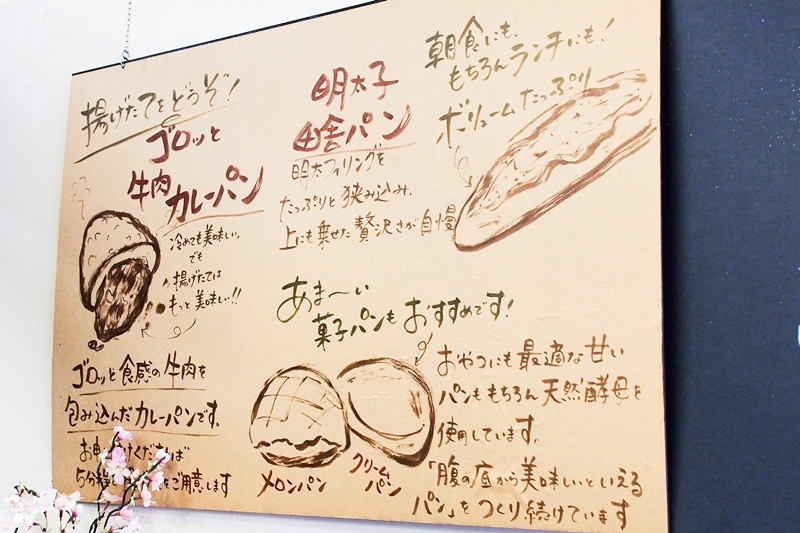 揚げたてをどうぞ!
ゴロッと
牛肉カレーパン
冷めても美味しい。
でも
揚げたては
もっと美味しい!!
ゴロッと食感の牛肉を
包み込んだカレーパンです。
お申
くだされば
5分
ご用意します
明太子
田舎パン
明太フィリングを
たっぷりと挟み込み、
上にも乗せた贅沢さが自慢
朝食にも、
もちろんランチにも!
ボリュームたっぷり
あま〜い
菓子パンもおすすめです!
メロンパン
クリーム
パン
おやつにも最適な甘い
パンももちろん天然酵母を
使用しています。
「腹の底から美味しいといえる
パン」をつくり続けています